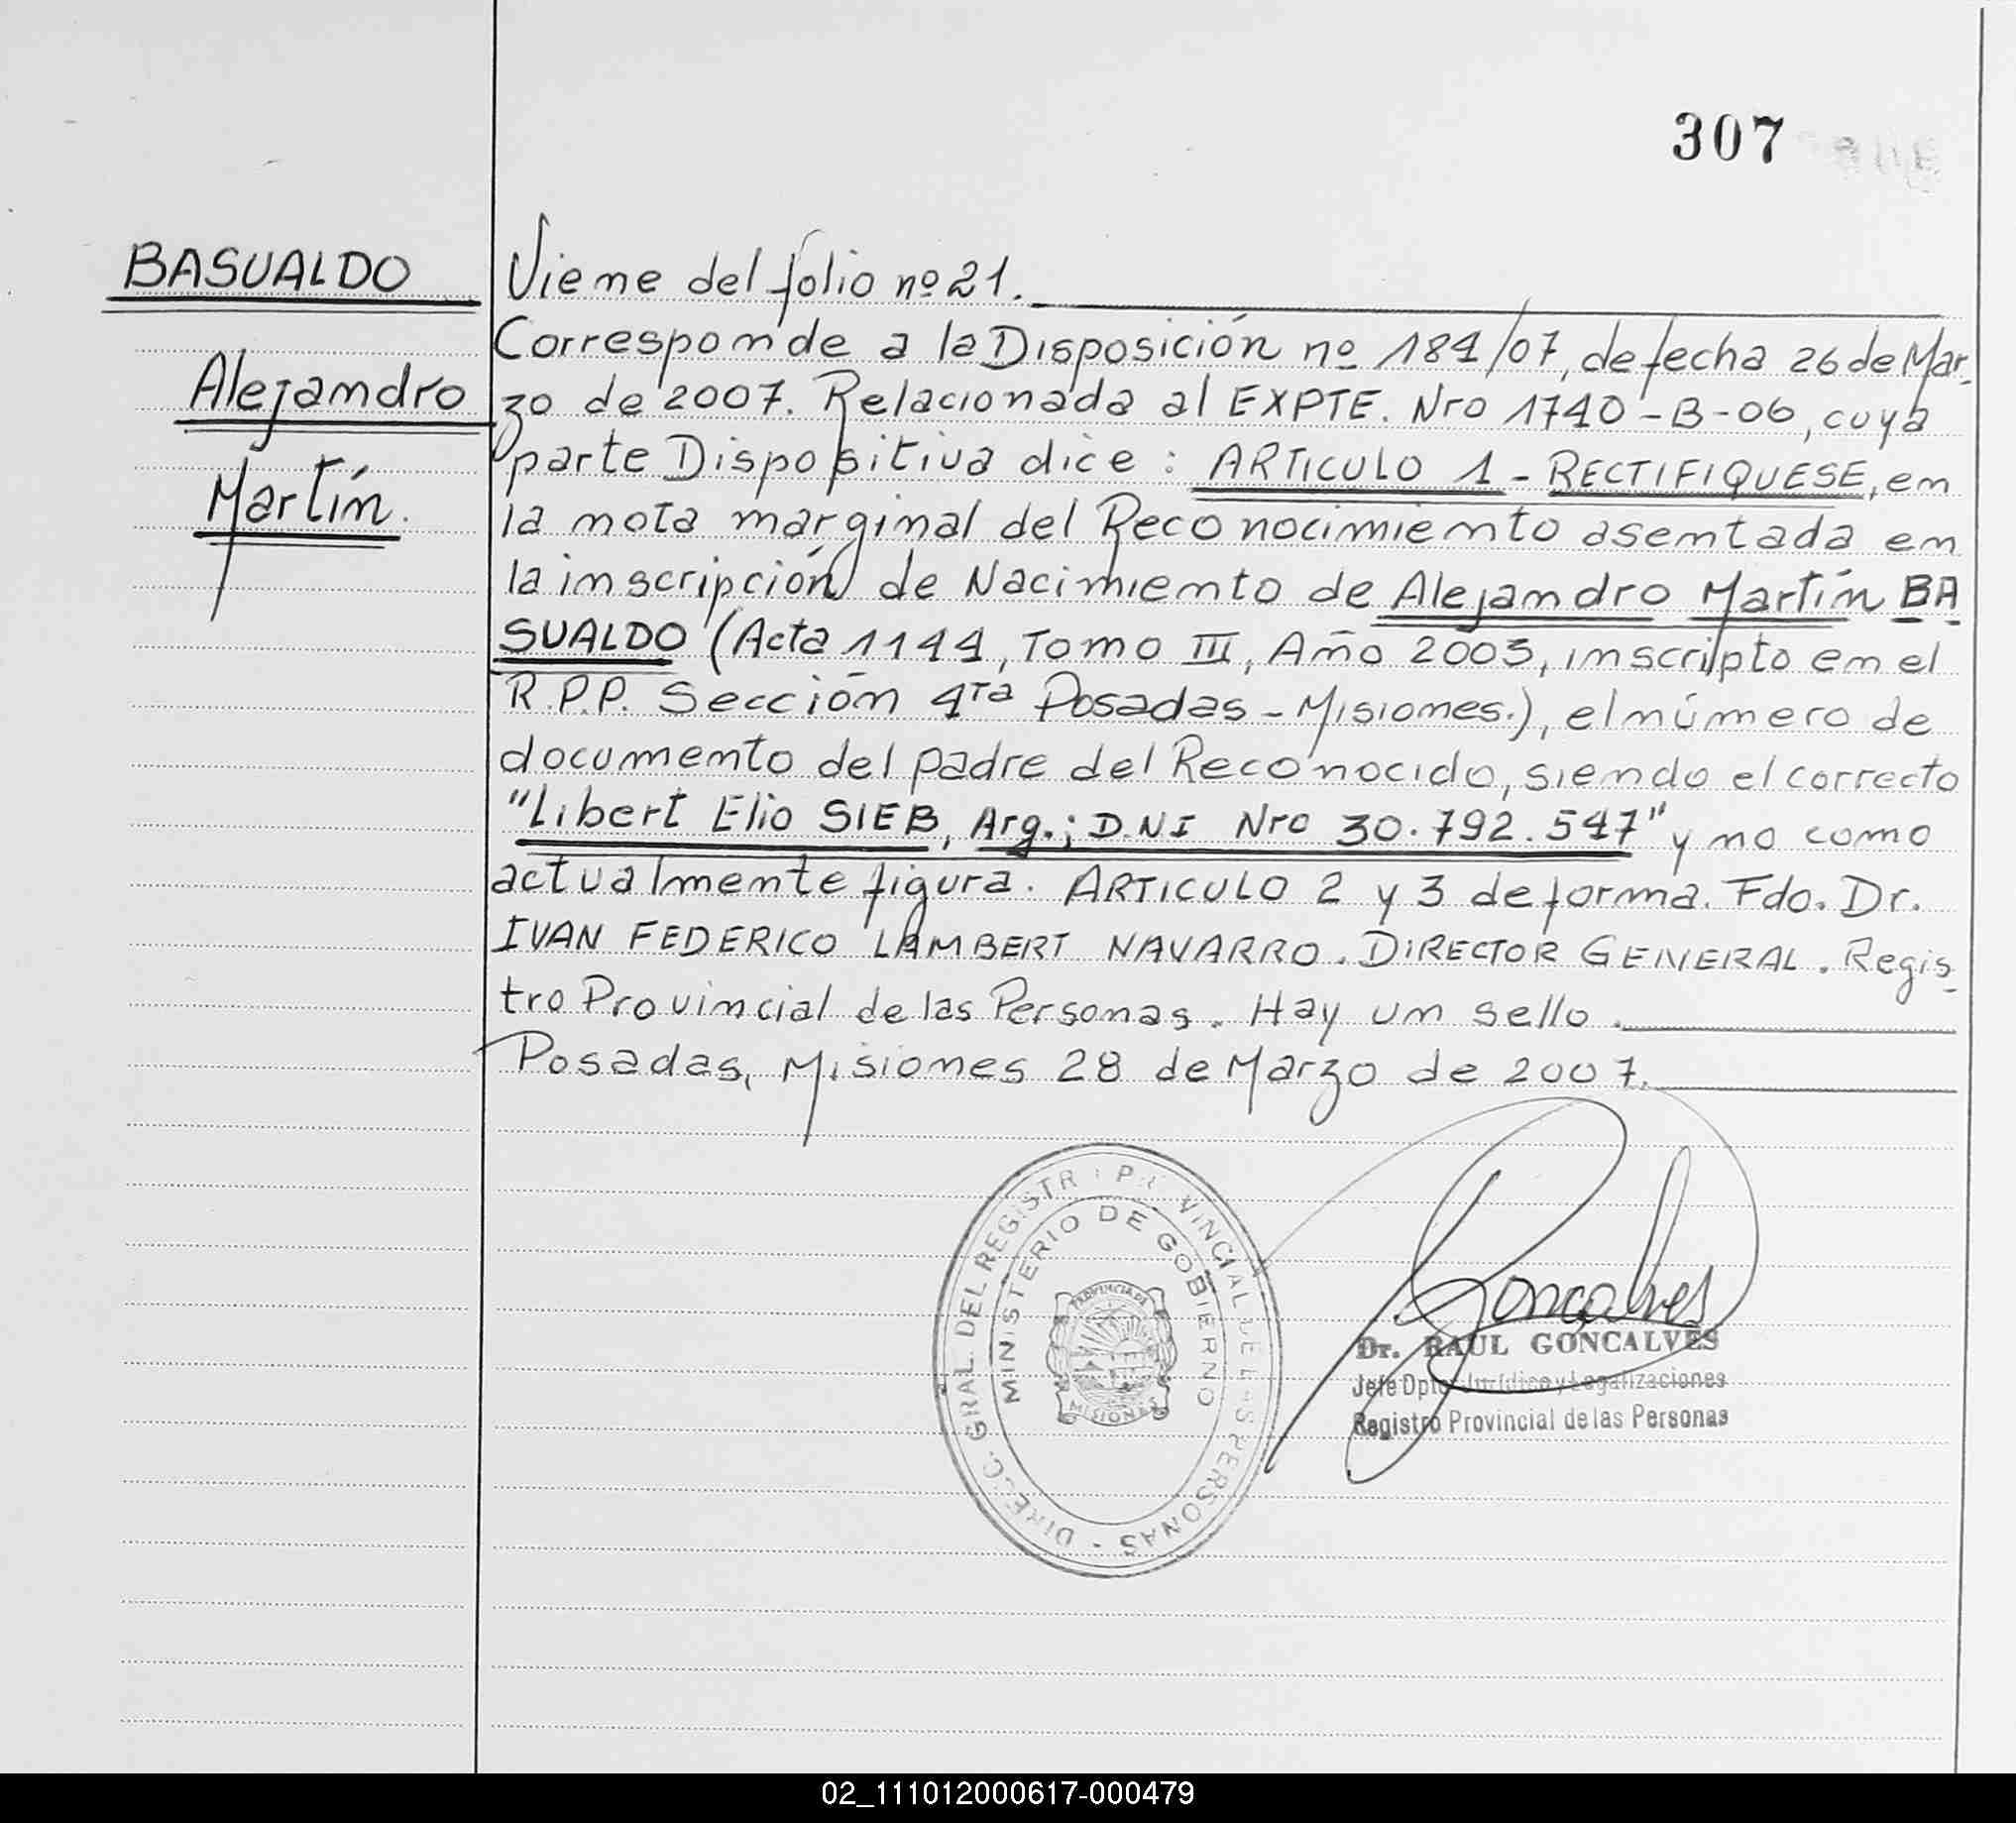 307
BASUALDO
Alejandro
Martín.
Viene del folio nº 21.
Corresponde a la Disposición nº 184/07, de fecha 26 de Mar-
zo de 2007. Relacionada al EXPTE. Nro 1740-B-06, cuya
parte Dispositiva dice: ARTICULO 1 - RECTIFIQUESE, en
la nota marginal del Reconocimiento asentada en
la inscripción de Nacimiento de Alejandro Martín BA
SUALDO (Acta 1144, Tomo III, Año 2003, inscripto en el
R.P.P. Sección 4ta Posadas - Misiones.), el número de
documento del padre del Reconocido, siendo el correcto
"Libert Elio SIEB, Arg.; D.N.I Nro 30.792.547" y no como
actualmente figura. ARTICULO 2 y 3 de forma. Fdo. Dr.
IVAN FEDERICO LAMBERT NAVARRO. DIRECTOR GENERAL. Regis-
tro Provincial de las Personas. Hay un sello.
Posadas, Misiones 28 de Marzo de 2007.
DIRECC. GRAL. DEL REGISTRO PROVINCIAL DE LAS PERSONAS -
MINISTERIO DE GOBIERNO
PROVINCIA DE
MISIONES
Goncalves
Dr. RAUL GONCALVES
Jefe Dpto. Jurídico y Legalizaciones
Registro Provincial de las Personas
02_111012000617-000479